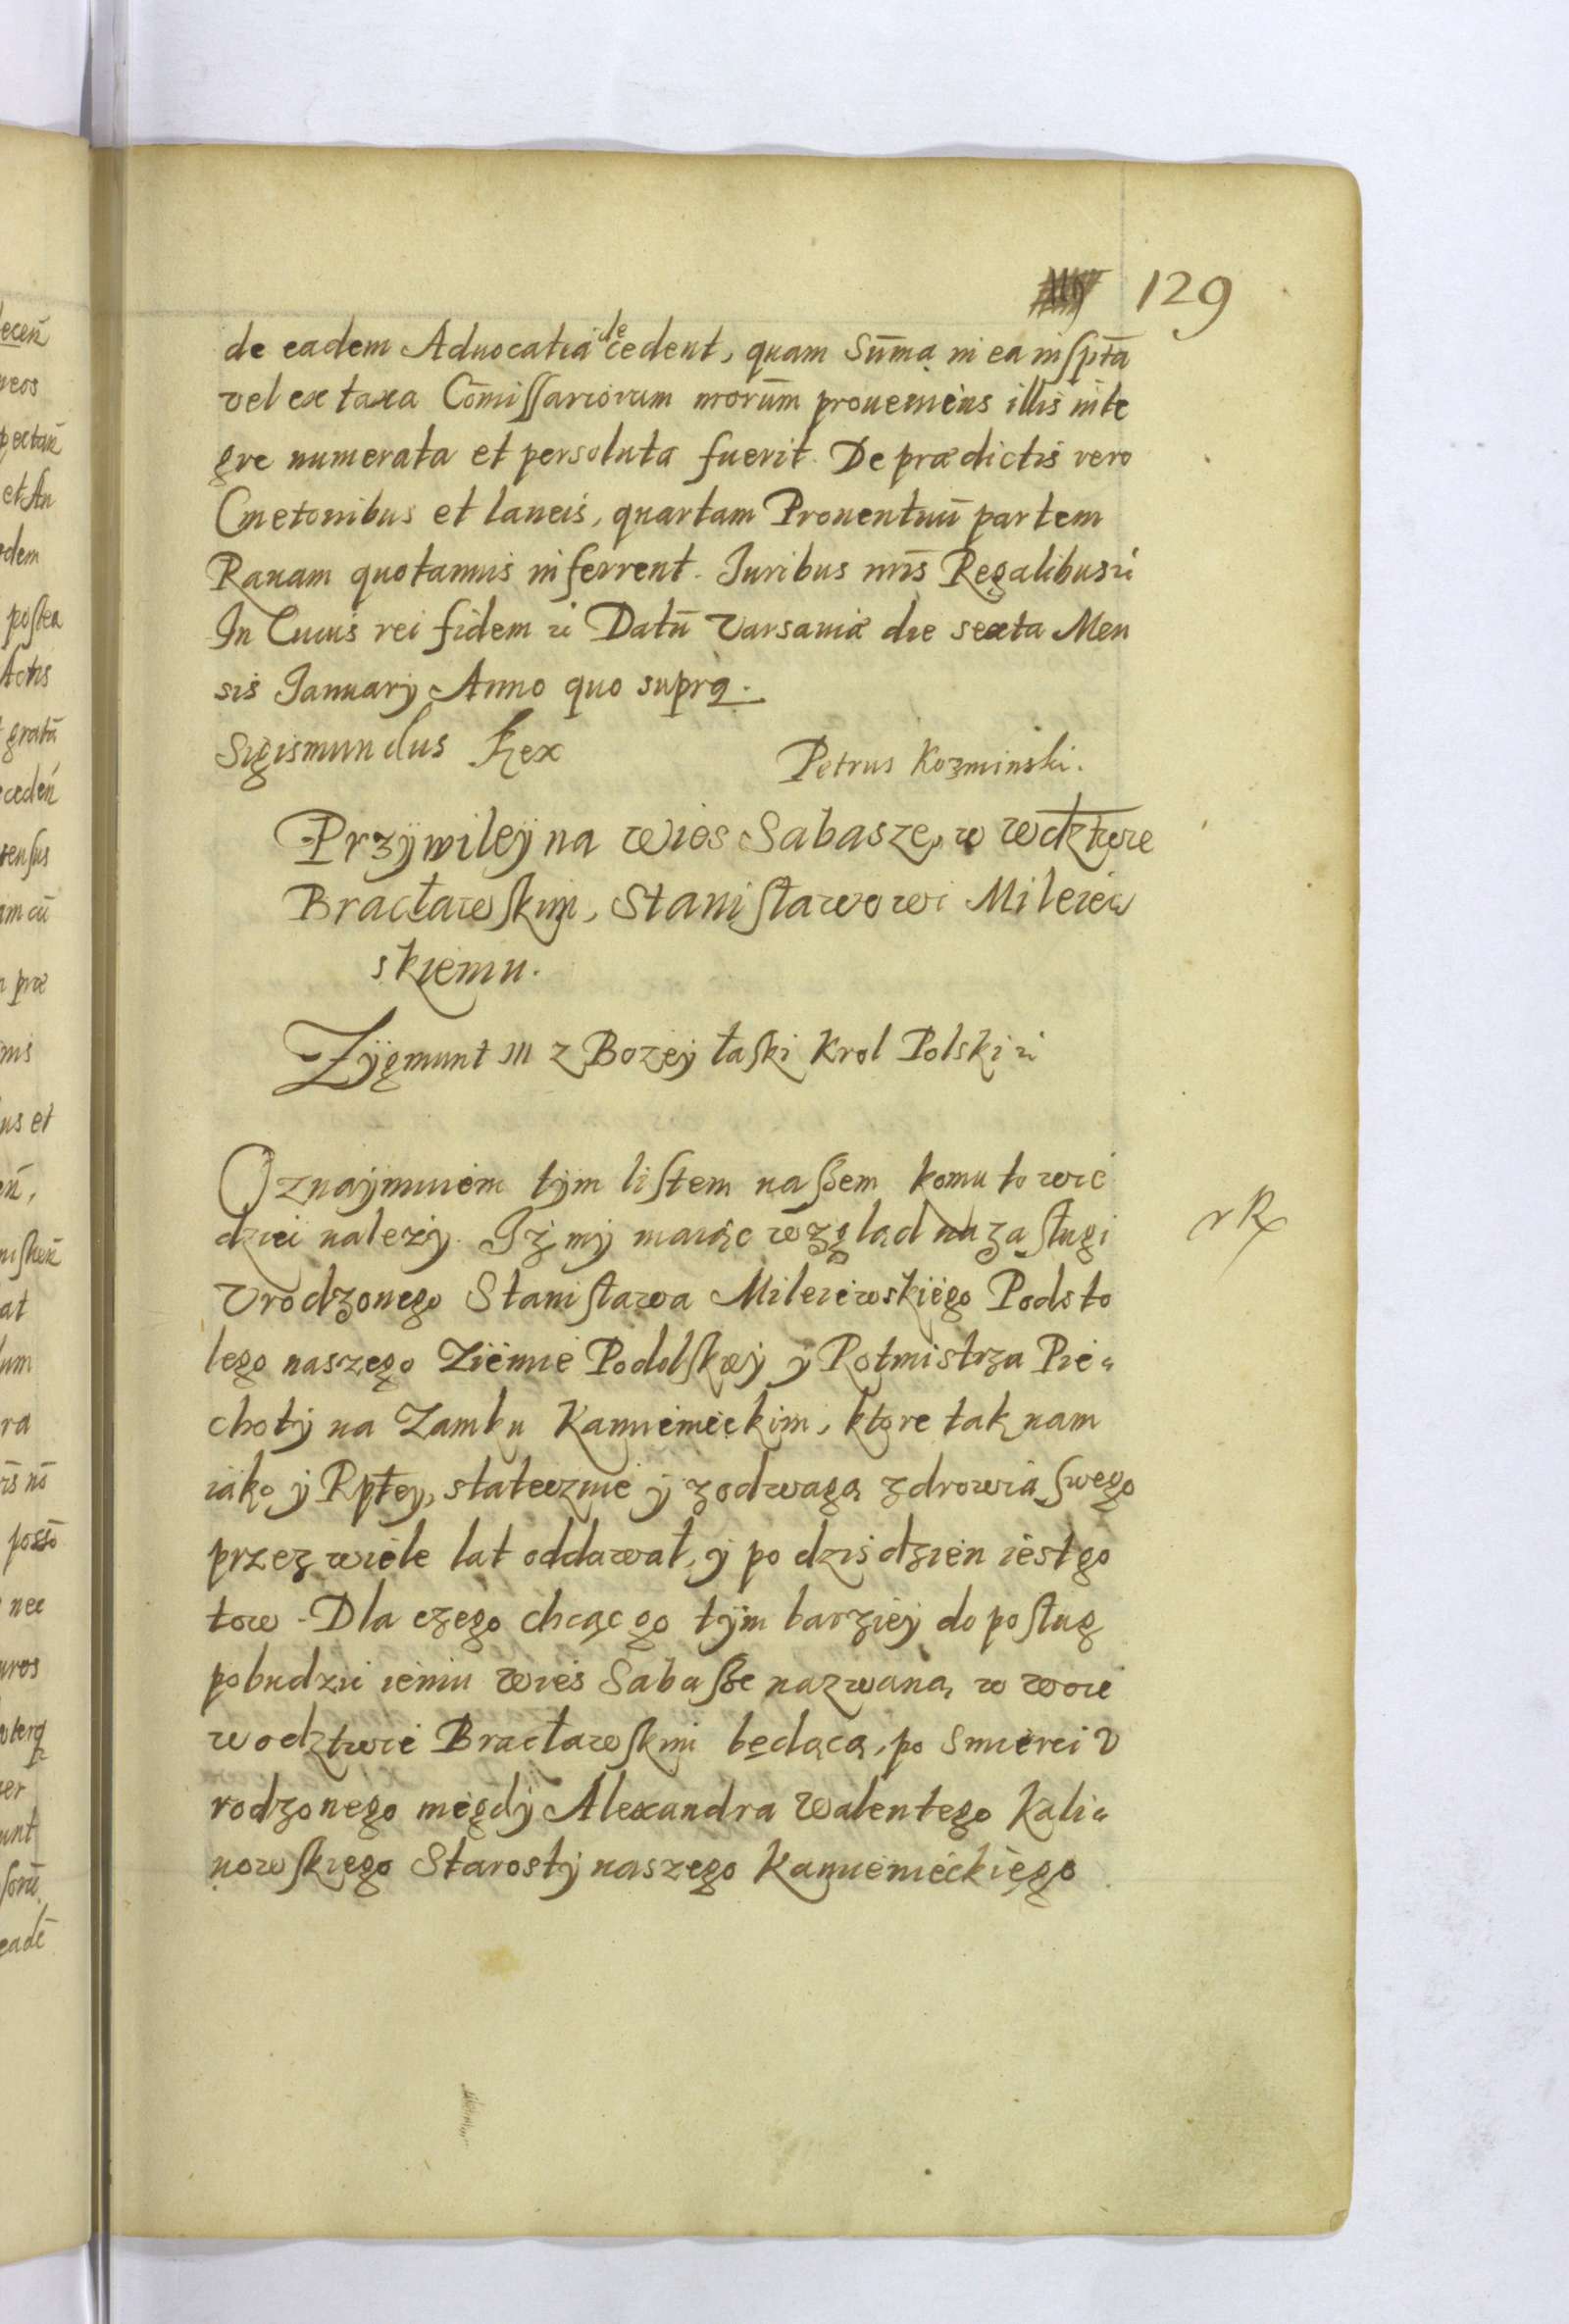 129
de eadem Aduocatia decedent, quam Sum̄a in ea inspt̄a
vel ex taxa Com̄issariorum nrorum̄ proueniens illis inte
gre numerata et persoluta fuerit. De prædictis vero
Cmetonibus et laneis, quartam Prouentuū partem
Rauam quotannis inferrent. Juribus nrīs Regalibus
In Cuius rei fidem Datū Varsauiæ die sexta Men
sis Januarij Anno quo supra.
Sigismundus Rex
Petrus Kozminski.
Przÿwileÿ na wies Sabasze, w wdztwie
Bracławskim, Stanisławowi Mileiew
skiemu.
Zÿgmunt III z Bozeÿ łaski Krol Polski
Oznaÿmuiem tÿm listem naßem komu to wie
dziec nalezÿ. Iz mÿ maiąc wzgląd na zasługi
Vrodzonego Stanisława Mileiewskiego Podsto
lego naszego Ziemie Podolskieÿ ÿ Rotmistrza Pie-
chotÿ na Zamku Kamienieckim, ktore tak nam
iako ÿ Rptey, statecznie ÿ z odwagą zdrowia swego
przez wiele lat oddawał, ÿ po dzis dzien iest go
tow. Dla czego chcąc go tÿm barzieÿ do posług
pobudzic iemu wies Sabaße nazwaną w woie
wodztwie Bracławskim będącą, po smierci V
rodzonego niegdÿ Alexandra Walentego Kali-
nowskiego Starostÿ naszego Kamienieckiego